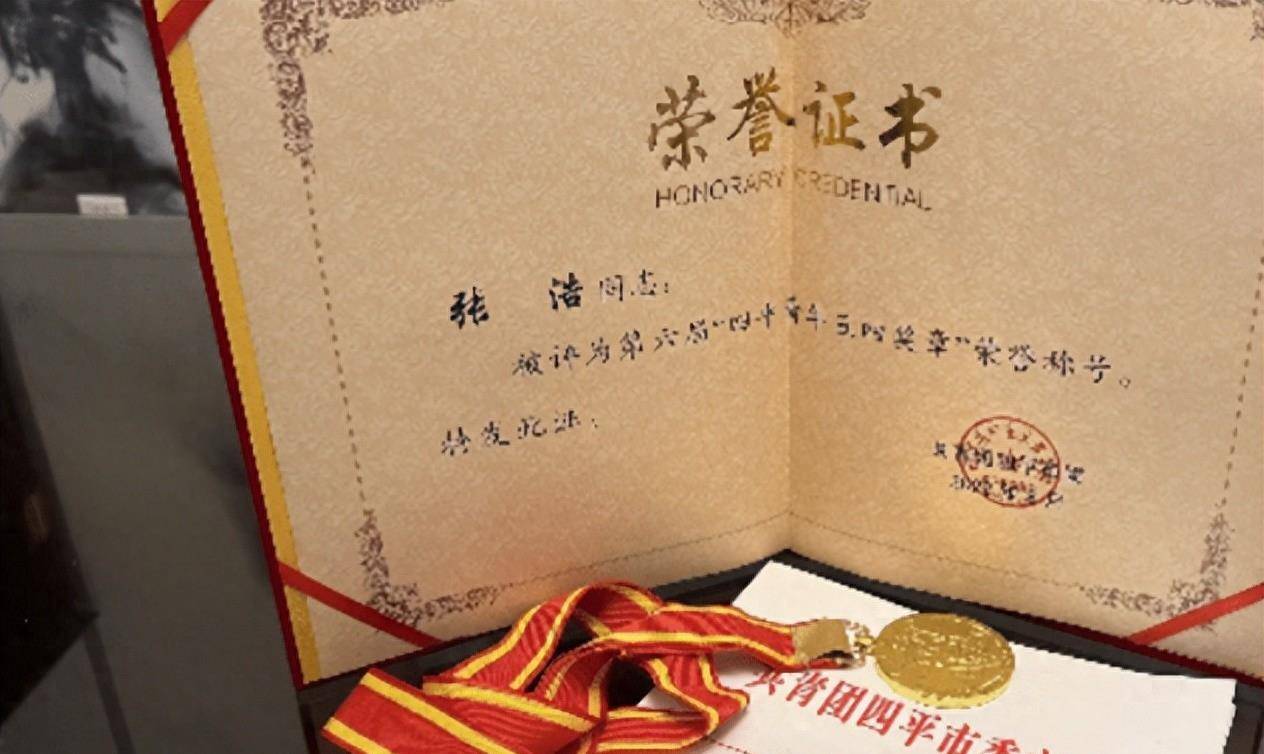 荣誉证书
HONORARY CREDENTIAL
张 浩同志：
被评为第六届“四平青年五四奖章”荣誉称号。
特发此证：
共青团四平市委